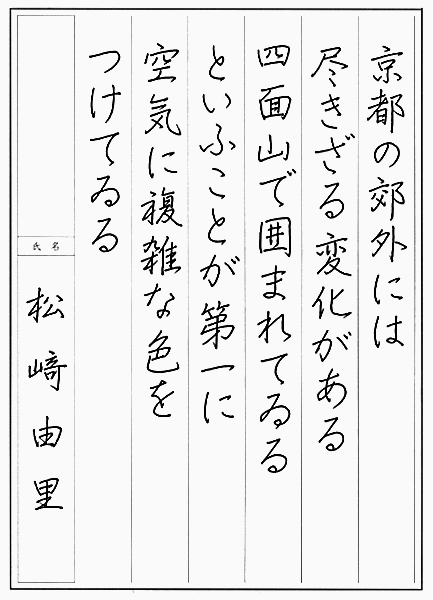 京都の郊外には
尽きざる変化がある
四面山で囲まれてゐる
といふことが第一に
空気に複雑な色を
つけてゐる
氏名
松﨑由里